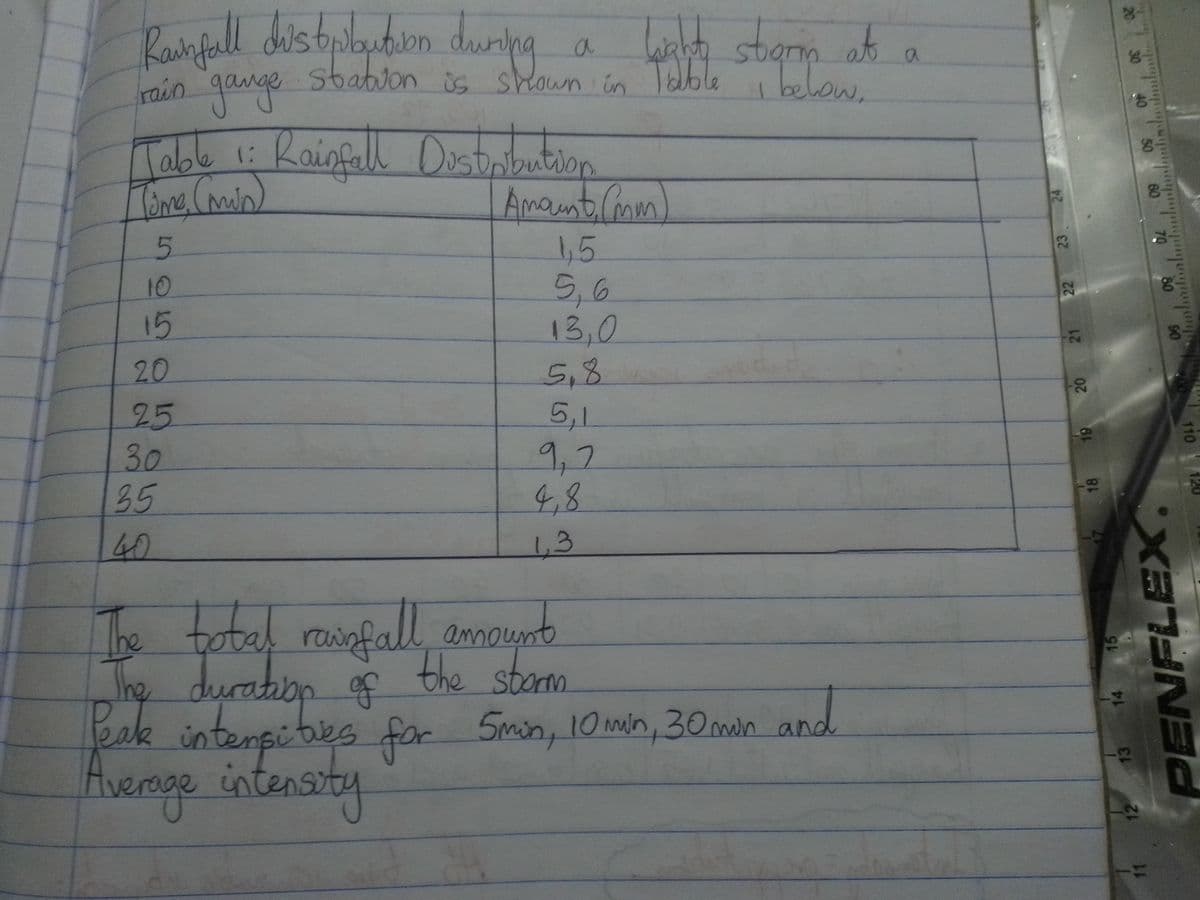 Rainfall distribution during a lighty storm at a
rain gauge station is shown in Table 1 below.
Table 1: Rainfall Distribution
Time, (min) Amount, (mm)
5 1,5
10 5,6
15 13,0
20 5,8
25 5,1
30 9,7
35 4,8
40 1,3
The total rainfall amount
The duration of the storm
Peak intensities for 5min, 10 min, 30 min and
Average intensity
20 30 40 50 60 70 80 90 110 120
24 23 22 21 20 19 18 17 15 14 13 12 11
PENFLEX.